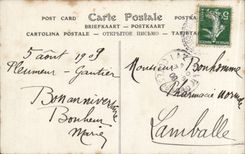 POST CARD Carte Postale POSTKARTE
BRIEFKAART
CARTOLINA POSTALE — ОТКРЫТОЕ ПИСЬМО —
5 août 1909
Pleumeur-Gautier
Bon anniversaire
Bonheur
Marie
Monsieur Bonhomme
Pharmacie
Lamballe